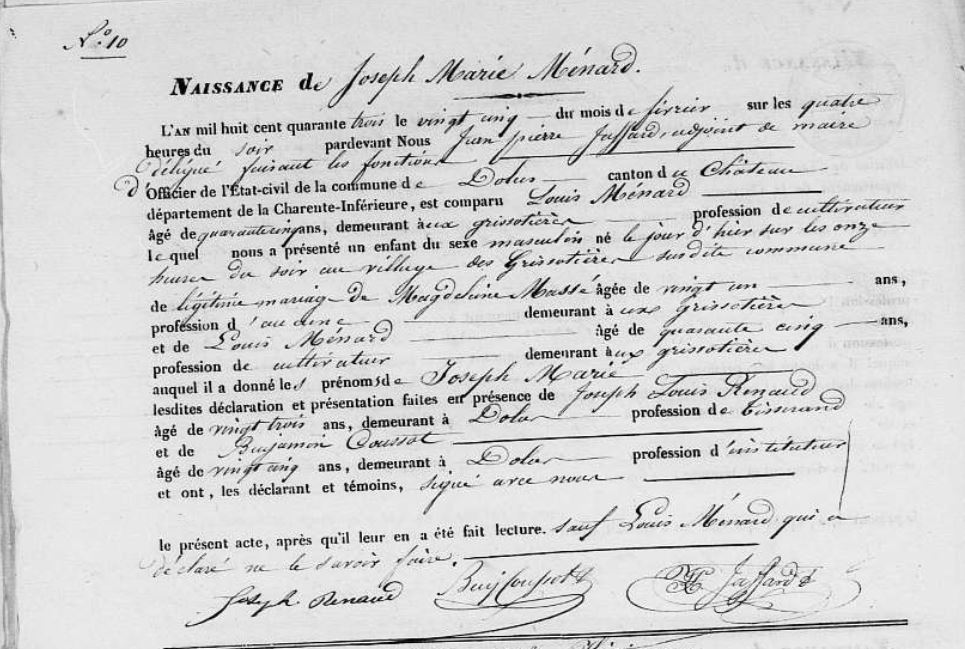 N.° 10
NAISSANCE de Joseph Marie Ménard.
L'AN mil huit cent quarante trois le vingt cinq du mois de février sur les quatre
heures du soir pardevant Nous Jean pierre Jaffard, adjoint de maire
délégué faisant les fonctions
d'Officier de l'État-civil de la commune de Dolus canton du Château
département de la Charente-Inférieure, est comparu Louis Ménard
âgé de quarante cinq ans, demeurant à aux grissotières profession de cultivateur
lequel nous a présenté un enfant du sexe masculin né le jour d'hier sur les onze
heures du soir au village des Grissotières susdite commune
de légitime mariage de Magdeleine Massé âgée de vingt un ans,
profession d'aucune demeurant à aux grissotières
et de Louis Ménard âgé de quarante cinq ans,
profession de cultivateur demeurant à aux grissotières
auquel il a donné les prénoms de Joseph Marie
lesdites déclaration et présentation faites en présence de Joseph Louis Renaud
âgé de vingt trois ans, demeurant à Dolus profession de tisserand
et de Benjamin Coussot
âgé de vingt cinq ans, demeurant à Dolus profession d'instituteur
et ont, les déclarant et témoins, signé avec nous
le présent acte, après qu'il leur en a été fait lecture. sauf Louis Ménard qui a
déclaré ne le savoir faire.
Joseph Renaud Benj Coussot Jaffard